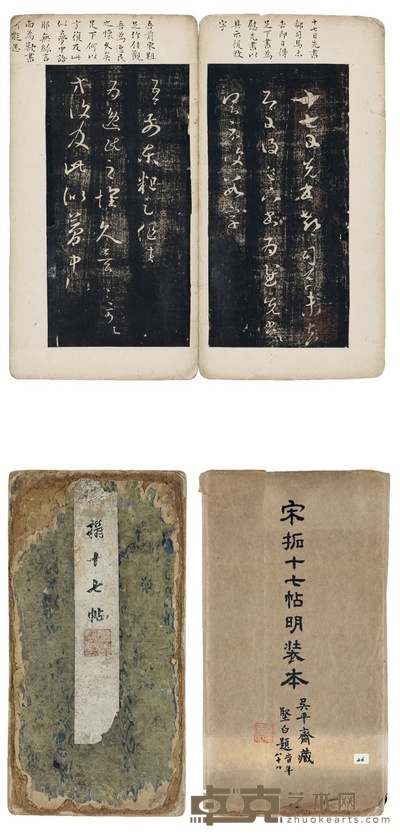 十七日先書
郗司馬未
去即日得
足下書為
慰先書以
具示復數
字
十七日先書郗司馬未去
即日得足下書為慰先書
以具示復數字
吾前東粗
足作佳觀
吾為逸民
之懷久矣
足下何以
方復及此
似夢中語
耶無緣言
面為歎書
何能悉
吾前東粗足作佳觀
吾為逸民之懷久矣足下何以
方復及此似夢中
十七帖
宋拓十七帖明裝本
吳平齋藏
堅白題
26
卓克艺术网
zhuokearts.com